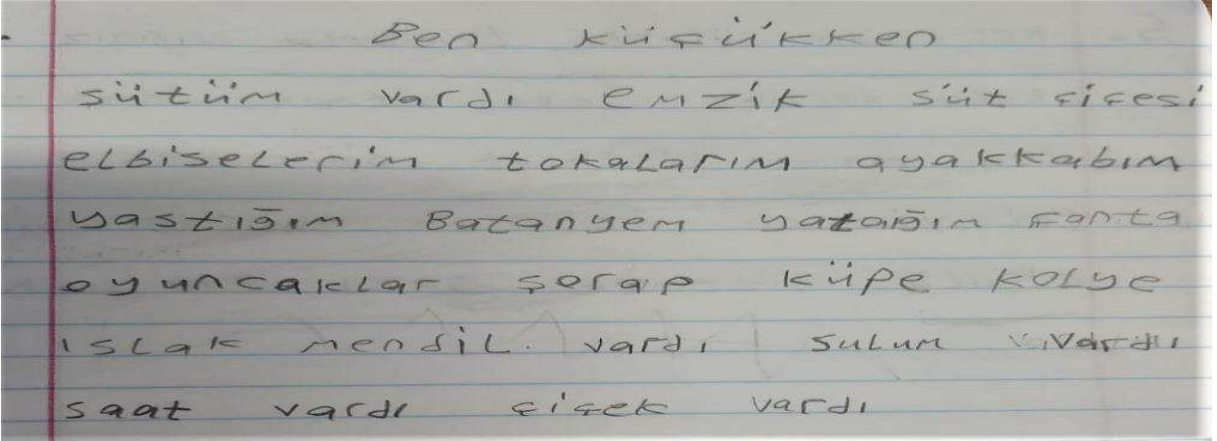 Ben küçükken
sütüm vardı emzik süt çiçesi
elbiselerim tokalarım ayakkabım
yastığım Batanyem yatağım çanta
oyuncaklar şorap küpe kolye
ıslak mendil. vardı sulum vardı
saat vardı çiçek vardı